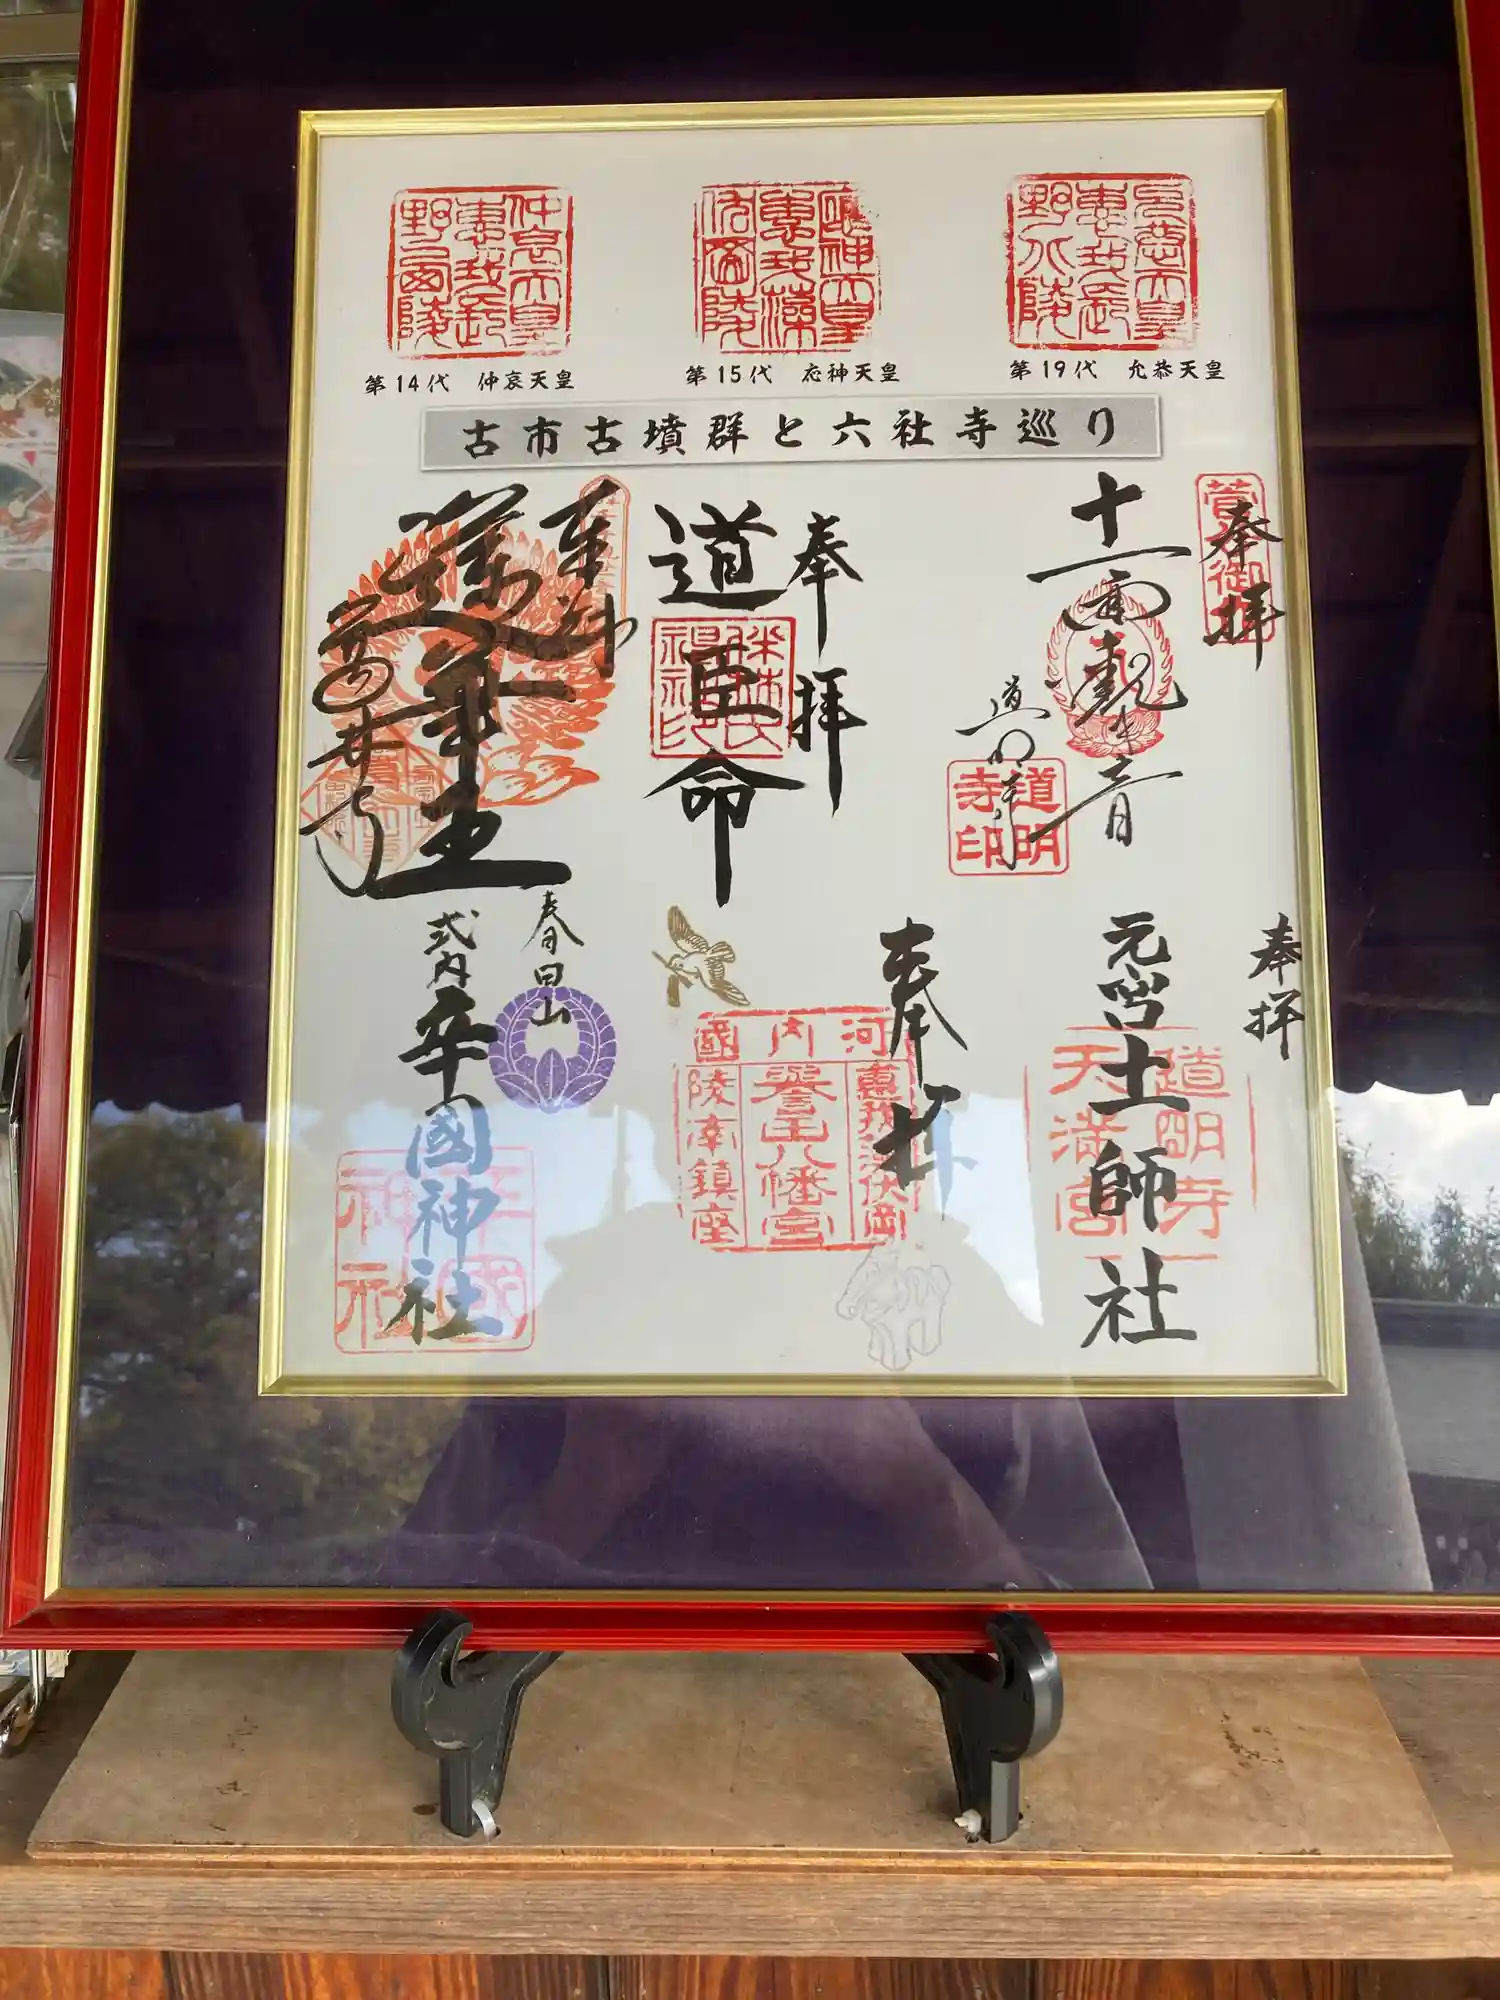 仲哀天皇
惠我長
野西陵
應神天皇
惠我藻
伏岡陵
允恭天皇
惠我長
野北陵
第14代 仲哀天皇
第15代 応神天皇
第19代 允恭天皇
古市古墳群と六社寺巡り
奉拝
十一面観世音
道明寺
道明
寺印
奉拝
道臣命
奉拝
葛井寺
奉拝
元宮土師社
道明寺
天満宮
奉拝
河内國
惠我藻伏岡
譽田八幡宮
陵南鎮座
春日山
式内辛國神社